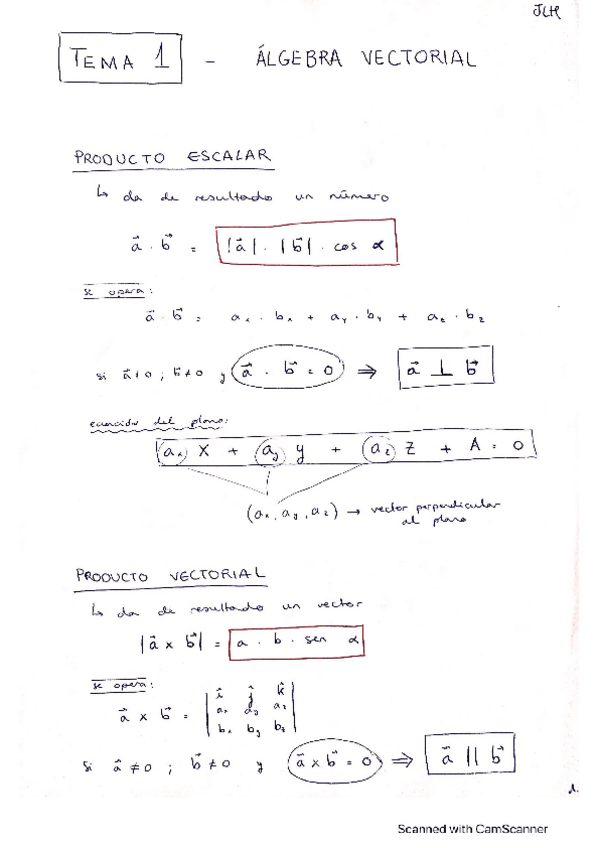 JLH
TEMA 1 - ÁLGEBRA VECTORIAL
PRODUCTO ESCALAR
↳ da de resultado un número
a⃗ · b⃗ = |a⃗| · |b⃗| · cos α
se opera:
a⃗ · b⃗ = aₓ · bₓ + aᵧ · bᵧ + a_z · b_z
si a⃗≠0 ; b⃗≠0 y a⃗ · b⃗ = 0 ⇒ a⃗ ⊥ b⃗
ecuación del plano:
aₓ X + aᵧ y + a_z Z + A = 0
(aₓ, aᵧ, a_z) → vector perpendicular
al plano
PRODUCTO VECTORIAL
↳ da de resultado un vector
|a⃗ x b⃗| = a · b · sen α
se opera:
î ĵ k̂
a⃗ x b⃗ = | aₓ aᵧ a_z |
bₓ bᵧ b_z
Si a⃗ ≠ 0 ; b⃗ ≠ 0 y a⃗ x b⃗ = 0 ⇒ a⃗ || b⃗
1.
Scanned with CamScanner